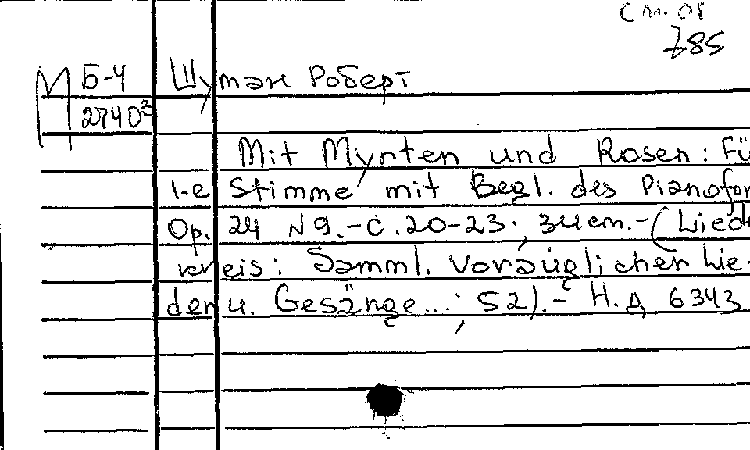 См. 08
785
М Б-4 Шуман Роберт
2740²
Mit Myrten und Rosen: Fü
1-e Stimme mit Begl. des Pianofor
Op. 24 N9.-С.20-23; 34cm.-(Lied
kreis: Samml. vorzüglicher Lie-
der u. Gesänge...; 52).- Н.д. 6343